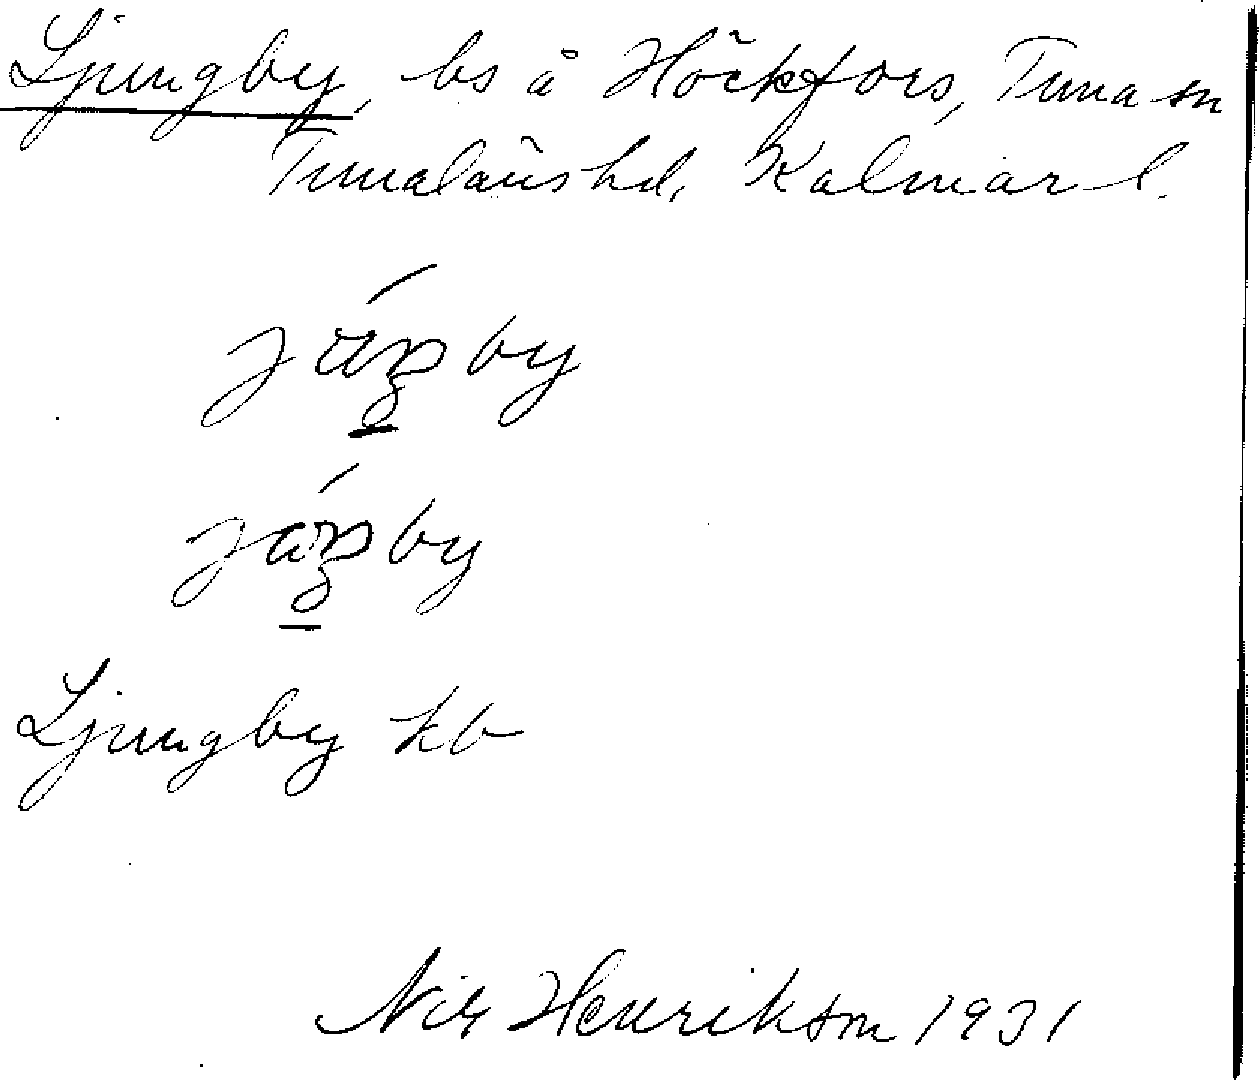 Ljungby, bs å Höckfors, Tuna sn
Tunaläns hd, Kalmar l.
by
by
Ljungby kb
Nils Henrikson 1931